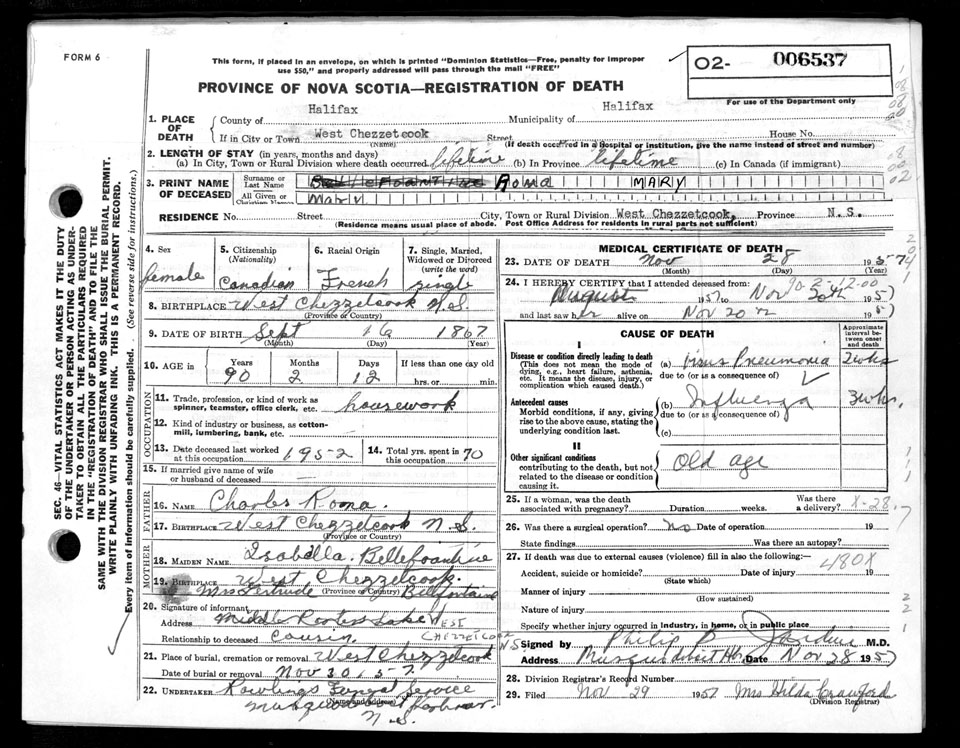 FORM 6
This form, if placed in an envelope, on which is printed "Dominion Statistics—Free, penalty for improper
use $50," and properly addressed will pass through the mail "FREE"
O2- 006537
For use of the Department only
PROVINCE OF NOVA SCOTIA—REGISTRATION OF DEATH
1. PLACE OF DEATH
County of Halifax Municipality of Halifax
If in City or Town West Chezzetcook Street House No.
(Name) (If death occurred in a Hospital or institution, give the name instead of street and number)
2. LENGTH OF STAY (in years, months and days)
(a) In City, Town or Rural Division where death occurred lifetime (b) In Province lifetime (c) In Canada (if immigrant)
3. PRINT NAME OF DECEASED
Surname or Last Name Roma MARY
All Given or Christian Names Mary
RESIDENCE No. Street City, Town or Rural Division West Chezzetcook, Province N.S.
(Residence means usual place of abode. Post Office Address for residents in rural parts not sufficient)
4. Sex female
5. Citizenship (Nationality) Canadian
6. Racial Origin French
7. Single, Married, Widowed or Divorced (write the word) single
8. BIRTHPLACE West Chezzetcook N.S.
(Province or Country)
9. DATE OF BIRTH Sept 16 1867
(Month) (Day) (Year)
10. AGE in Years 90 Months 2 Days 12 If less than one day hrs. or min.
OCCUPATION
11. Trade, profession, or kind of work as spinner, teamster, office clerk, etc. housework
12. Kind of industry or business, as cotton-mill, lumbering, bank, etc.
13. Date deceased last worked at this occupation 1952
14. Total yrs. spent in this occupation 70
15. If married give name of wife or husband of deceased —
FATHER
16. NAME Charles Roma
17. BIRTHPLACE West Chezzetcook N.S.
(Province or Country)
MOTHER
18. MAIDEN NAME Isabella Bellefontaine
19. BIRTHPLACE West Chezzetcook.
(Province or Country)
20. Signature of informant Mrs Gertrude Bellfontaine
Address Middle Porters Lake WEST CHEZZETCOOK N.S.
Relationship to deceased cousin
21. Place of burial, cremation or removal West Chezzetcook
Date of burial or removal Nov 30, 57
22. UNDERTAKER Rowlings Funeral Service
(Name and address)
Musquodoboit Harbour
N.S.
MEDICAL CERTIFICATE OF DEATH
23. DATE OF DEATH Nov 28 1957
(Month) (Day) (Year)
24. I HEREBY CERTIFY that I attended deceased from:
August 1957 to Nov 20th 1957
and last saw her alive on Nov 20 1957
CAUSE OF DEATH
Approximate interval between onset and death
I
Disease or condition directly leading to death
(This does not mean the mode of dying, e.g., heart failure, asthenia, etc. It means the disease, injury, or complication which caused death.)
(a) Virus Pneumonia 2wks
due to (or as a consequence of)
Antecedent causes
Morbid conditions, if any, giving rise to the above cause, stating the underlying condition last.
(b) Influenza 3wks.
due to (or as a consequence of)
(c)
II
Other significant conditions
contributing to the death, but not related to the disease or condition causing it
Old age
25. If a woman, was the death associated with pregnancy? Duration weeks. Was there a delivery? X-28
26. Was there a surgical operation? no Date of operation 19
State findings Was there an autopsy?
27. If death was due to external causes (violence) fill in also the following:—
Accident, suicide or homicide? Date of injury 19
480X
(State which)
Manner of injury
(How sustained)
Nature of injury
Specify whether injury occurred in industry, in home, or in public place
Signed by Philip B Jardine M.D.
Address Date Nov 28 1957
28. Division Registrar's Record Number
29. Filed Nov 29 1957 Mrs Hilda Crawford
(Division Registrar)
SEC. 46—VITAL STATISTICS ACT MAKES IT THE DUTY
OF THE UNDERTAKER OR PERSON ACTING AS UNDER-
TAKER TO OBTAIN ALL THE PARTICULARS REQUIRED
IN THE "REGISTRATION OF DEATH" AND TO FILE THE
SAME WITH THE DIVISION REGISTRAR WHO SHALL ISSUE THE BURIAL PERMIT.
WRITE PLAINLY WITH UNFADING INK. THIS IS A PERMANENT RECORD.
Every item of information should be carefully supplied. (See reverse side for instructions.)